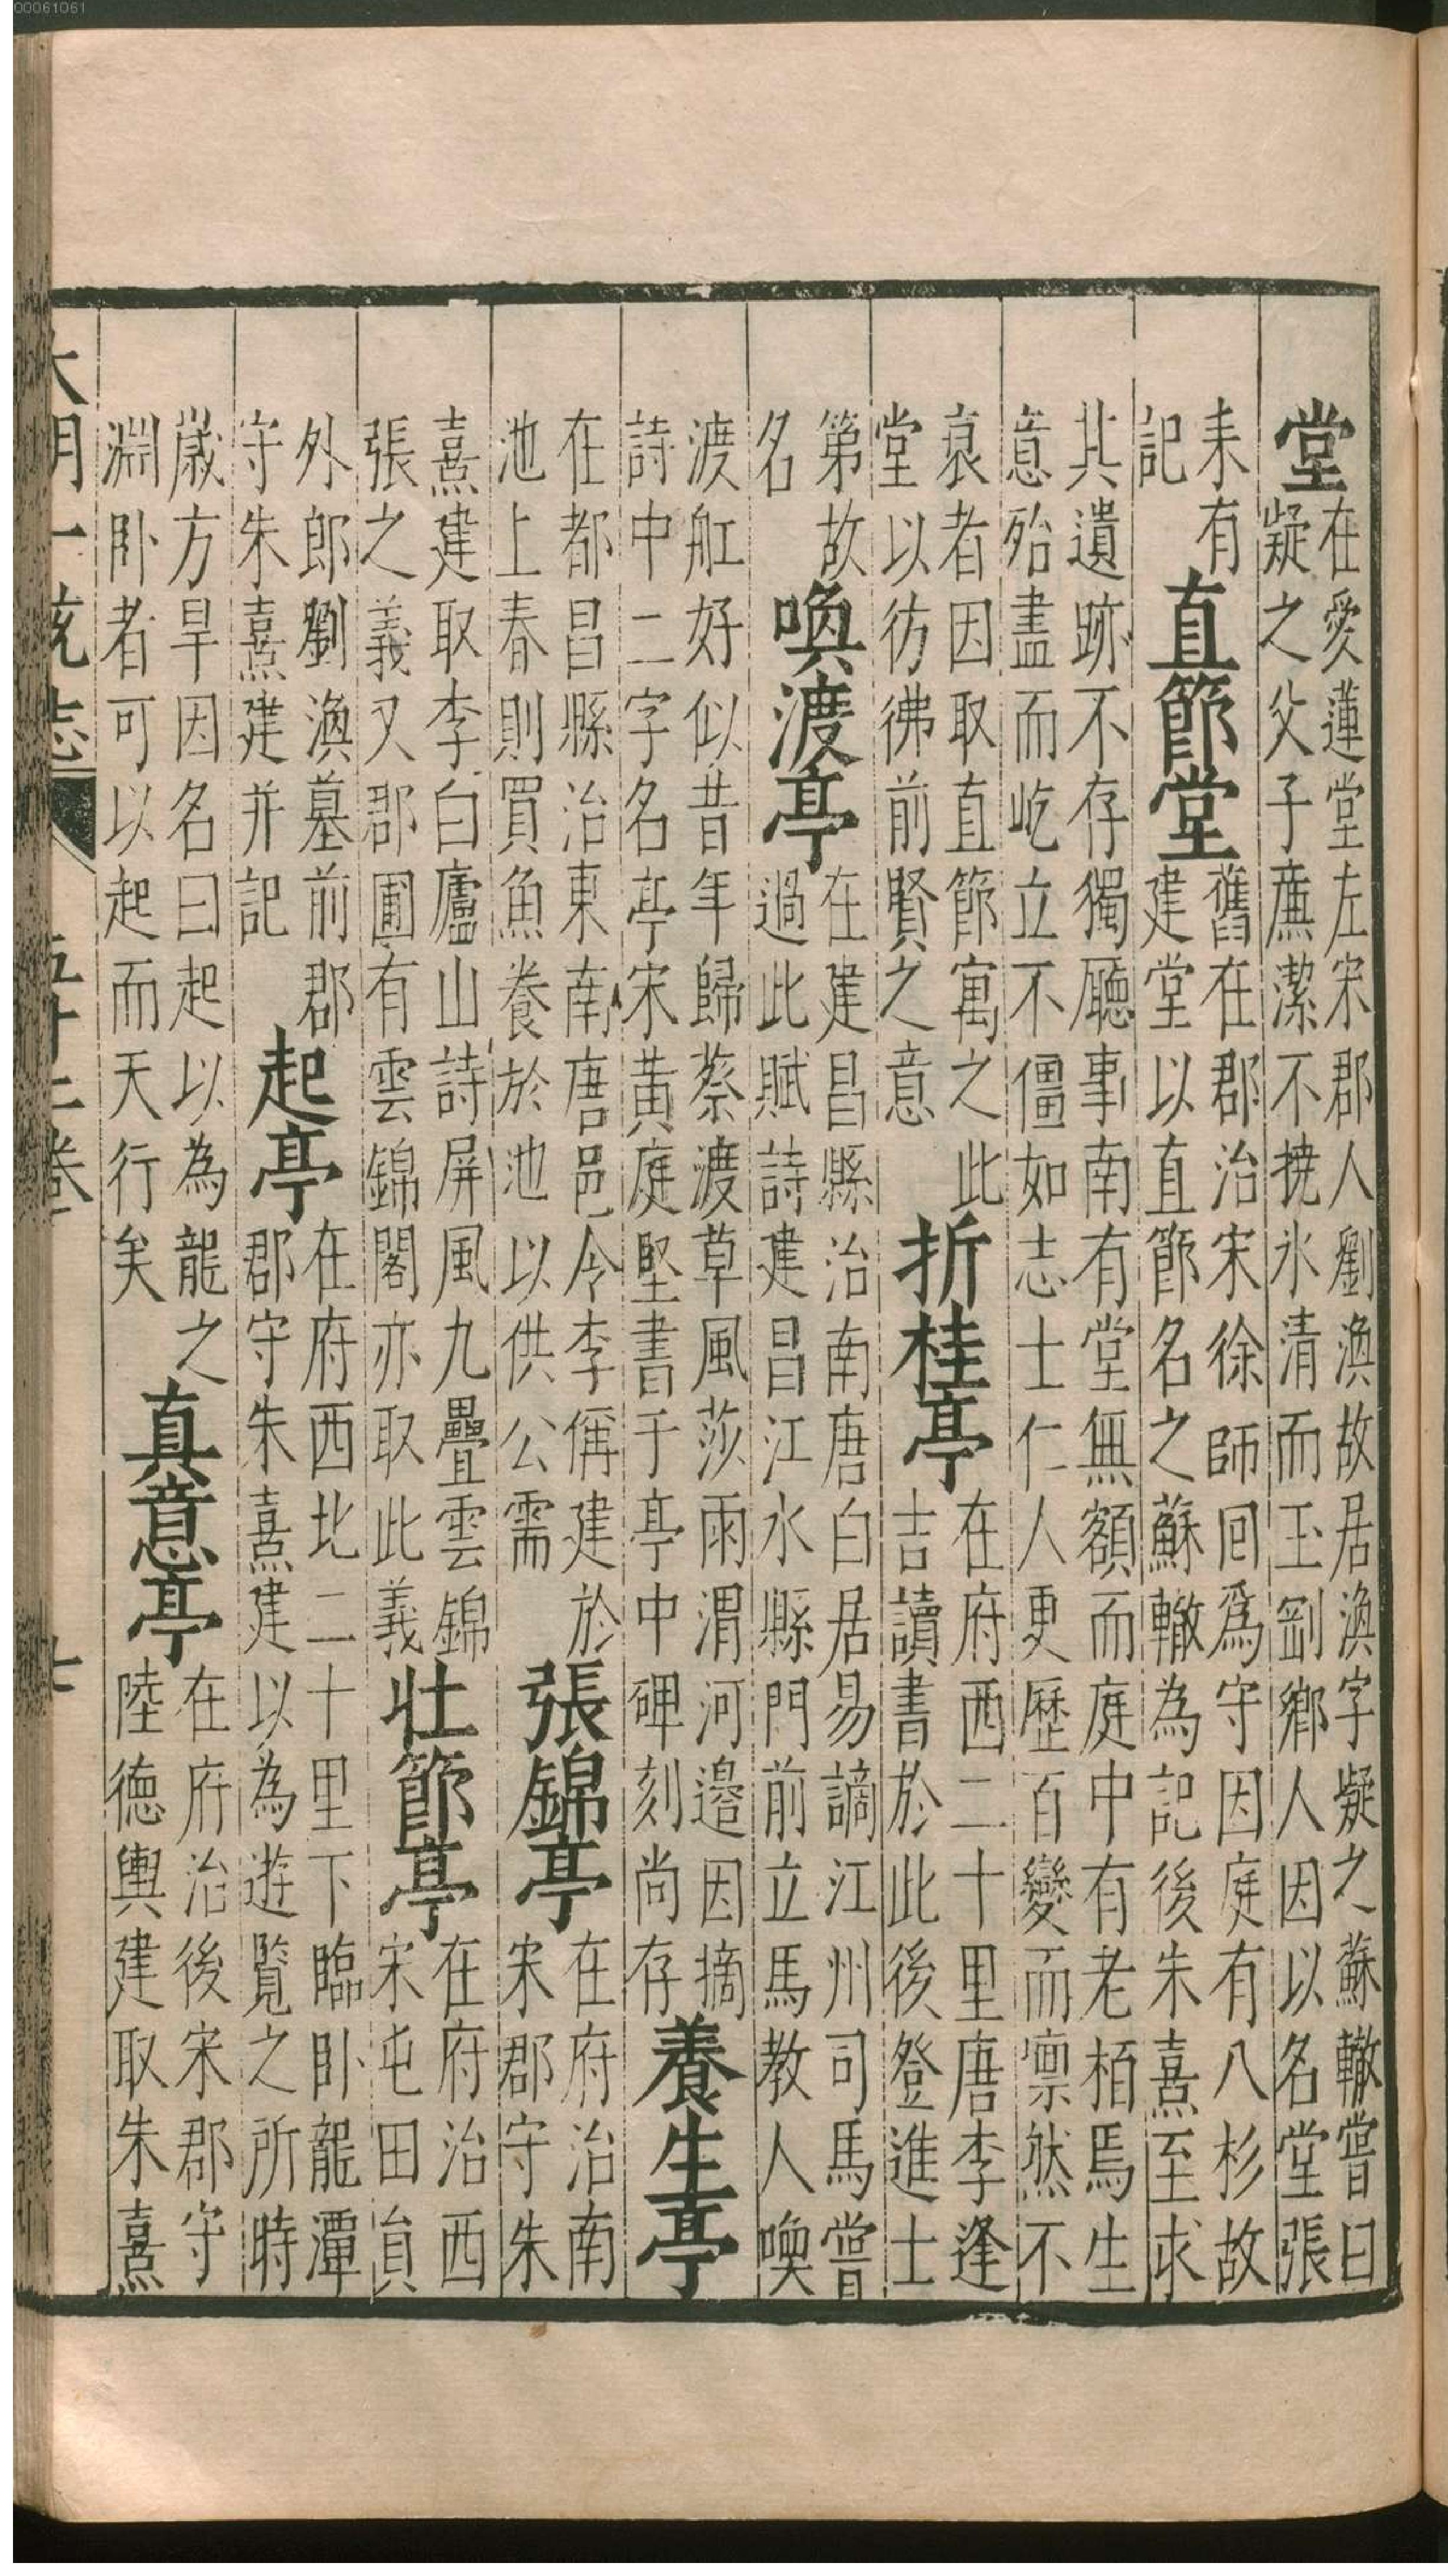 堂
在愛蓮堂左宋郡人劉渙故居渙字疑之蘇轍嘗曰
疑之父子㢘潔不撓氷清而玉剛鄉人因以名堂張
耒有
記
直節堂
舊在郡治宋徐師囘爲守因庭有八杉故
建堂以直節名之蘇轍為記後朱熹至求
其遺跡不存獨廳事南有堂無額而庭中有老栢焉生
意殆盡而屹立不僵如志士仁人更歷百變而凛然不
衰者因取直節寓之此
堂以彷彿前賢之意
折桂亭
在府西二十里唐李逢
吉讀書於此後登進士
第故
名
喚渡亭
在建昌縣治南唐白居易謫江州司馬嘗
過此賦詩建昌江水縣門前立馬教人喚
渡舡好似昔年歸蔡渡草風莎雨渭河邉因摘
詩中二字名亭宋黄庭堅書于亭中碑刻尚存
養生亭
在都昌縣治東南唐邑令李偁建於
池上春則買魚養於池以供公需
張錦亭
在府治南
宋郡守朱
熹建取李白廬山詩屏風九疊雲錦
張之義又郡圃有雲錦閣亦取此義
壮節亭
在府治西
宋屯田貟
外郎劉渙墓前郡
守朱熹建并記
起亭
在府西北二十里下臨卧龍潭
郡守朱熹建以為遊覧之所時
嵗方旱因名曰起以為龍之
淵卧者可以起而天行矣
真意亭
在府治後宋郡守
陸德輿建取朱熹
大明一统志
00061061